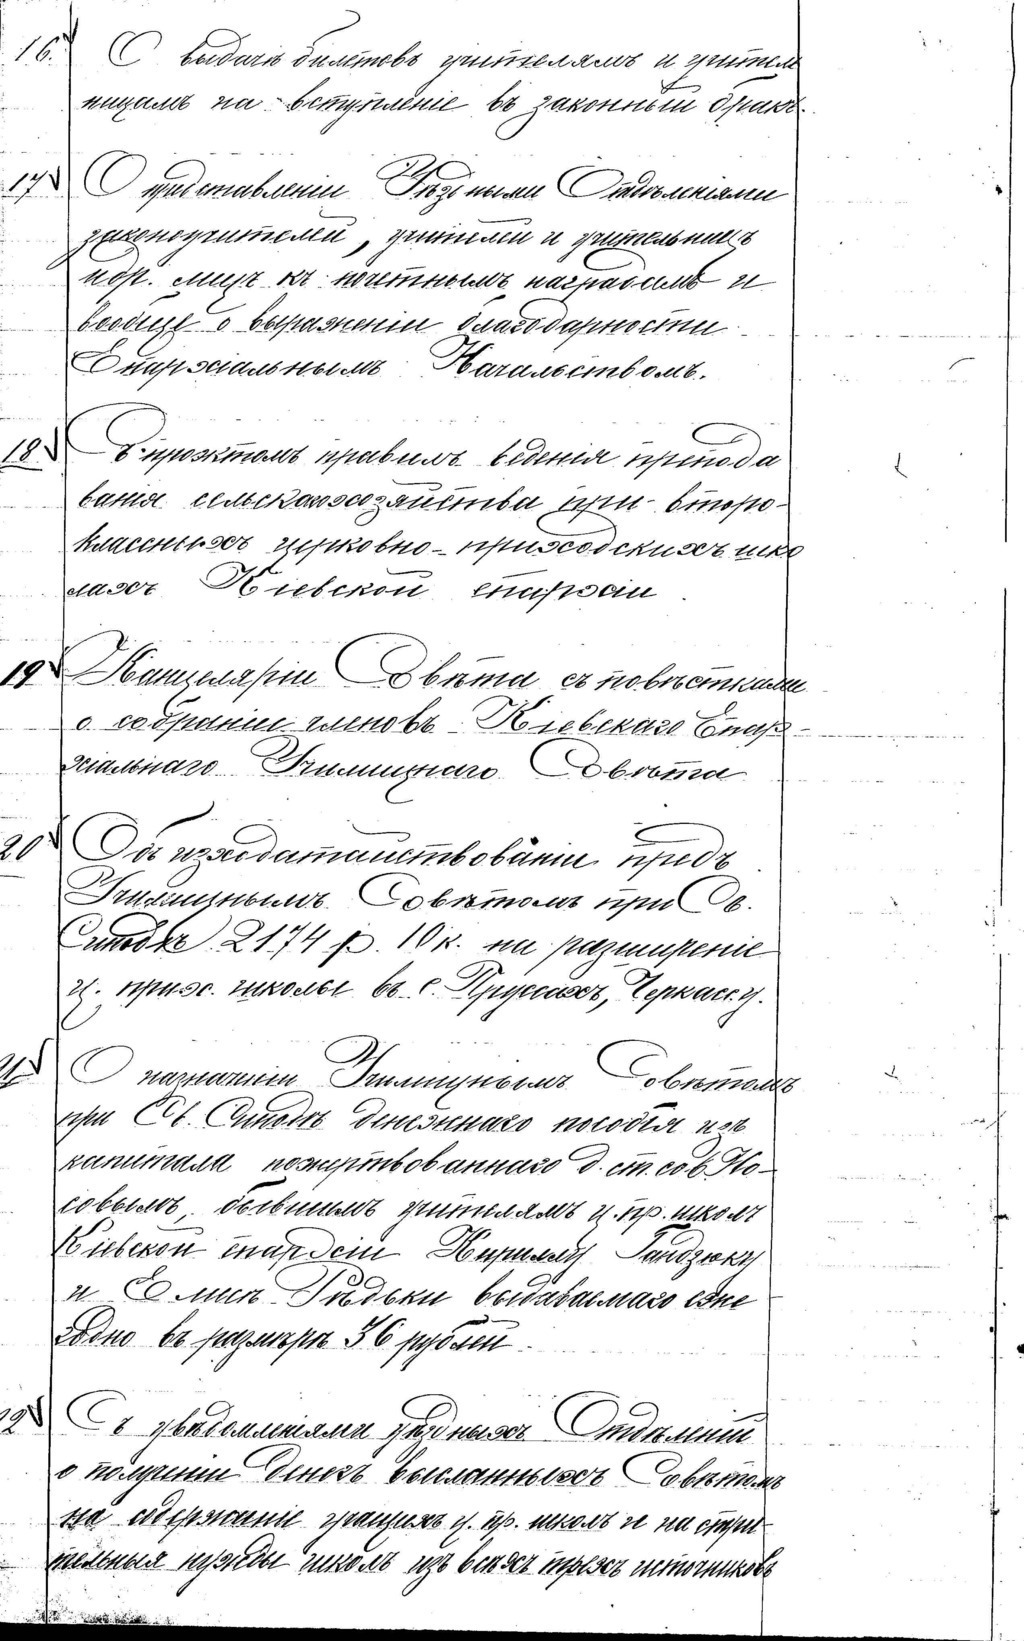 16. О выдачѣ билетовъ учителямъ и учитель
ницамъ на вступленіе въ законный бракъ.
17. О представленіи Уѣздными Отдѣленіями
законоучителей, учителей и учительницъ
и др. лицъ къ почетнымъ наградамъ и
вообще о выраженіи благодарности
Епархіальнымъ Начальствомъ.
18. Съ проэктомъ правилъ веденія препода
ванія сельскаго хозяйства при второ-
классныхъ церковно-приходскихъ шко
лахъ Кіевской епархіи
19. Канцеляріи Совѣта съ повѣстками
о собраніи членовъ Кіевскаго Епар-
хіальнаго Училищнаго Совѣта
20. Объ исходатайствованіи предъ
Училищнымъ Совѣтомъ при Св.
Синодѣ 2174 р. 10 к. на расширеніе
ц. прих. школы въ с. Пруссахъ, Черкас. у.
21. О назначеніи Училищнымъ Совѣтомъ
при Св. Синодѣ денежнаго пособія изъ
капитала пожертвованнаго д. ст. сов. Но-
совымъ, бывшимъ учителямъ ц. пр. школъ
Кіевской епархіи Кириллу Гандзюку
и Еминѣ Рѣдьки выдаваемаго еже
годно въ размѣрѣ 36 рублей.
22. Съ увѣдомленіями уѣздныхъ Отдѣленій
о полученіи денегъ высланныхъ Совѣтомъ
на содержаніе учащихъ ц. пр. школъ и на строи
тельныя нужды школъ изъ всѣхъ трехъ источниковъ